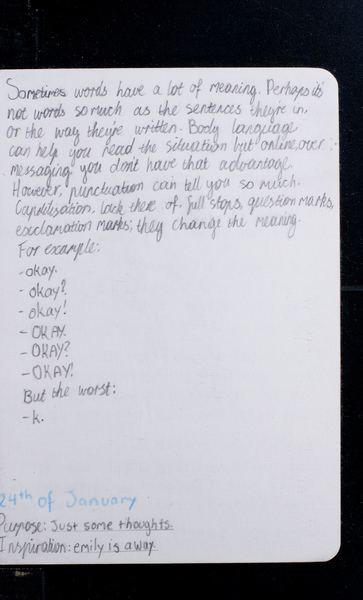 Sometimes words have a lot of meaning. Perhaps it's
not words so much as the sentences they're in,
or the way they're written. Body language
can help you read the situation but online, over
messaging, you don't have that advantage.
However, punctuation can tell you so much.
Capitilisation, lack there of, full stops, question marks,
exclamation marks; they change the meaning.
For example:
- okay.
- okay?
- okay!
- OKAY.
- OKAY?
- OKAY!
But the worst:
- k.
24th of January
Purpose: Just some thoughts
Inspiration: emily is away